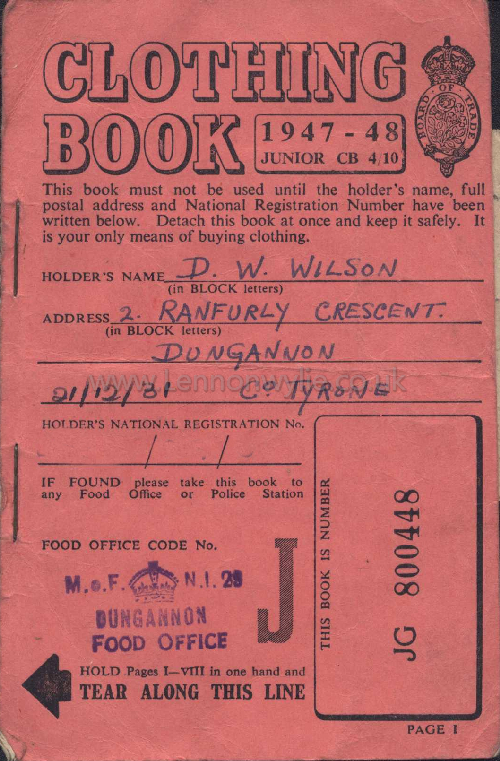 CLOTHING
BOOK
1947 - 48
JUNIOR CB 4/10
BOARD · OF · TRADE
This book must not be used until the holder's name, full
postal address and National Registration Number have been
written below. Detach this book at once and keep it safely. It
is your only means of buying clothing.
HOLDER'S NAME D. W. WILSON
(in BLOCK letters)
ADDRESS 2. RANFURLY CRESCENT.
(in BLOCK letters)
DUNGANNON
www.Lennonwylie.co.uk
21/12/31 Co TYRONE
HOLDER'S NATIONAL REGISTRATION No.
/ /
IF FOUND please take this book to
any Food Office or Police Station
FOOD OFFICE CODE No.
M.o.F. N.I. 29
DUNGANNON
FOOD OFFICE
J
THIS BOOK IS NUMBER
JG 800448
HOLD Pages I—VIII in one hand and
TEAR ALONG THIS LINE
PAGE I